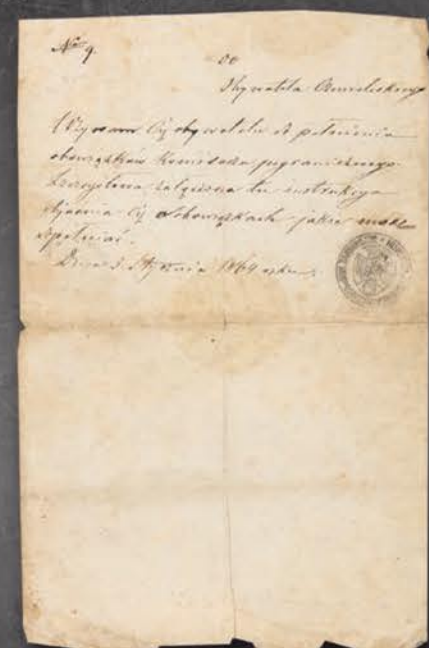 No 9.
Do
Obywatela
Wzywam Cię obywatelu do pełnienia
obowiązków Komisarza pogranicznego.
załączona tu instrukcya
objaśnia Cię o obowiązkach jakie masz
spełniać.
Dnia 3 Stycznia 1864 roku.